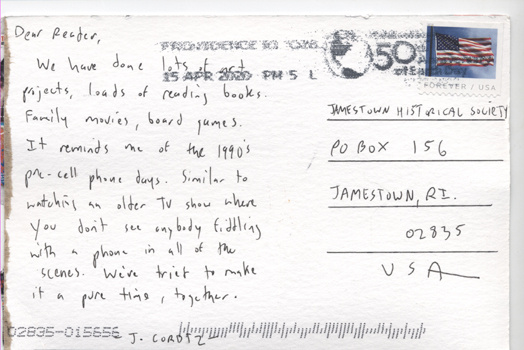 Dear Reader,
We have done lots of art
projects, loads of reading books.
Family movies, board games.
It reminds me of the 1990's
pre-cell phone days. Similar to
watching an older TV show where
you don't see anybody fiddling
with a phone in all of the
scenes. We've triet to make
it a pure time, together.
- J. CORDTZ -
PROVIDENCE RI 028
15 APR 2020 PM 5 L
50
of Earth Day
FOREVER / USA
JAMESTOWN HISTORICAL SOCIETY
PO BOX 156
JAMESTOWN, RI.
02835
USA
02835-015656